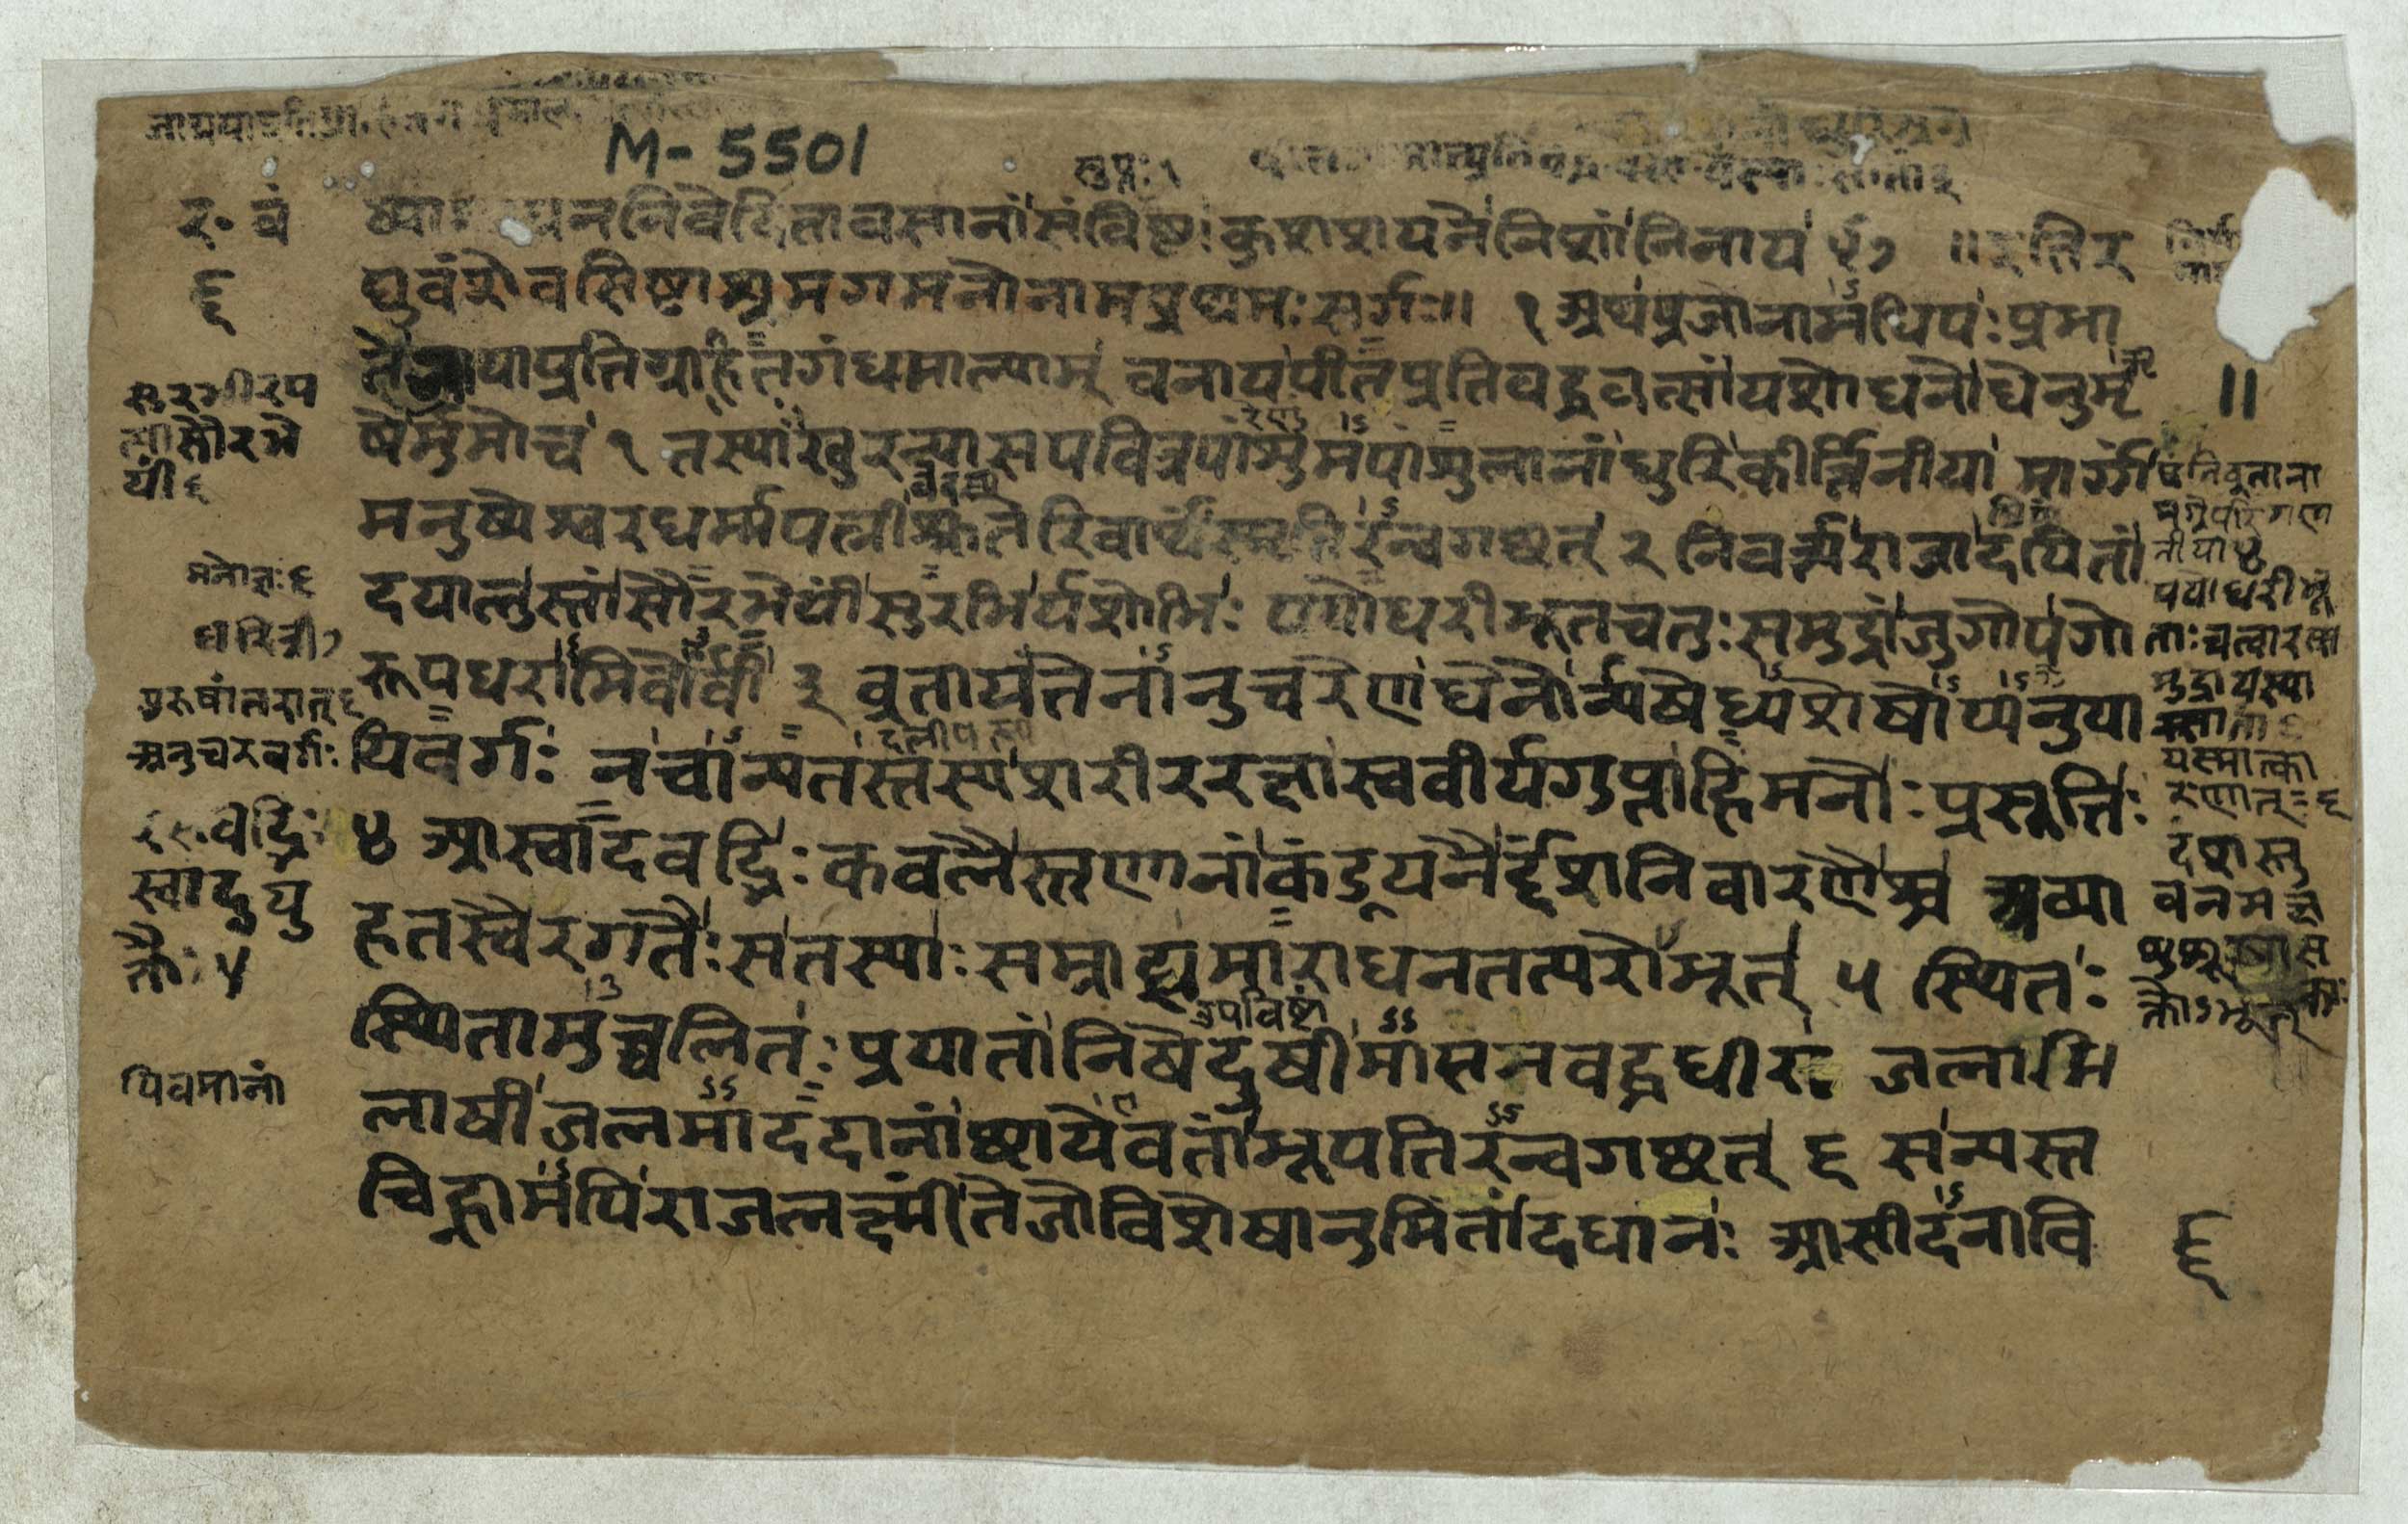 M-5501
सुप्तः १
र. वं
ष्या ध्ययननिवेदितावसानां संविष्टः कुशशयने निशां निनाय ९७ ॥ इति र
६
घुवंशे वसिष्टाश्रमगमनो नाम प्रथमः सर्गः ॥ १ अथ प्रजानामधिपः प्रभा
ते जायाप्रतिग्राहितगंधमाल्याम् वनाय पीतप्रतिबद्धवत्सां यशोधनो धेनुमृ
षेर्मुमोच १ तस्याः खुरन्यासपवित्रपांसुमपांसुलानां धुरि कीर्त्तनीया मार्गं
मनुष्येश्वरधर्मपत्नी श्रुतेरिवार्थं स्मृतिरन्वगछत् २ निवर्त्य राजा दयितां
दयालुस्तां सौरभेयीं सुरभिर्यशोभिः पयोधरीभूतचतुःसमुद्रां जुगोप गो
रूपधरामिवोर्वीं ३ व्रताय तेनानुचरेण धेनोर्न्यषेधि शेषोप्यनुया
यिवर्गः न चान्यतस्तस्य शरीररक्षा स्ववीर्यगुप्ता हि मनोः प्रसूतिः
४ आस्वादवद्भिः कवलैस्तृणानां कंडूयनैर्द्दंशनिवारणैश्च अव्या
हतस्वैरगतैः स तस्याः सम्राट् समाराधनतत्परोभूत् ५ स्थितः
स्थितामुच्चलितः प्रयातां निषेदुषीमासनबद्धधीरः जलाभि
लाषी जलमाददानां छायेव तां भूपतिरन्वगछत् ६ स न्यस्त
चिह्नामपि राजलक्ष्मीं तेजोविशेषानुमितां दधानः आसीदना वि
॥
सुरभीरप
त्यं सौरभे
यीं ६
मनोः
धरित्री
पुरुषांतरात्
अनुचरवर्गः
स्वादुयु
क्तैः ५
पिबमानां
रेणु
दिलीपस्य
उपविष्टां
पतिव्रताना
नीया
पयोधरीभू
ताः चत्वारः स
मुद्रा यस्या
यस्मात्का
रणात् ६
दंशास्तु
वनम
६